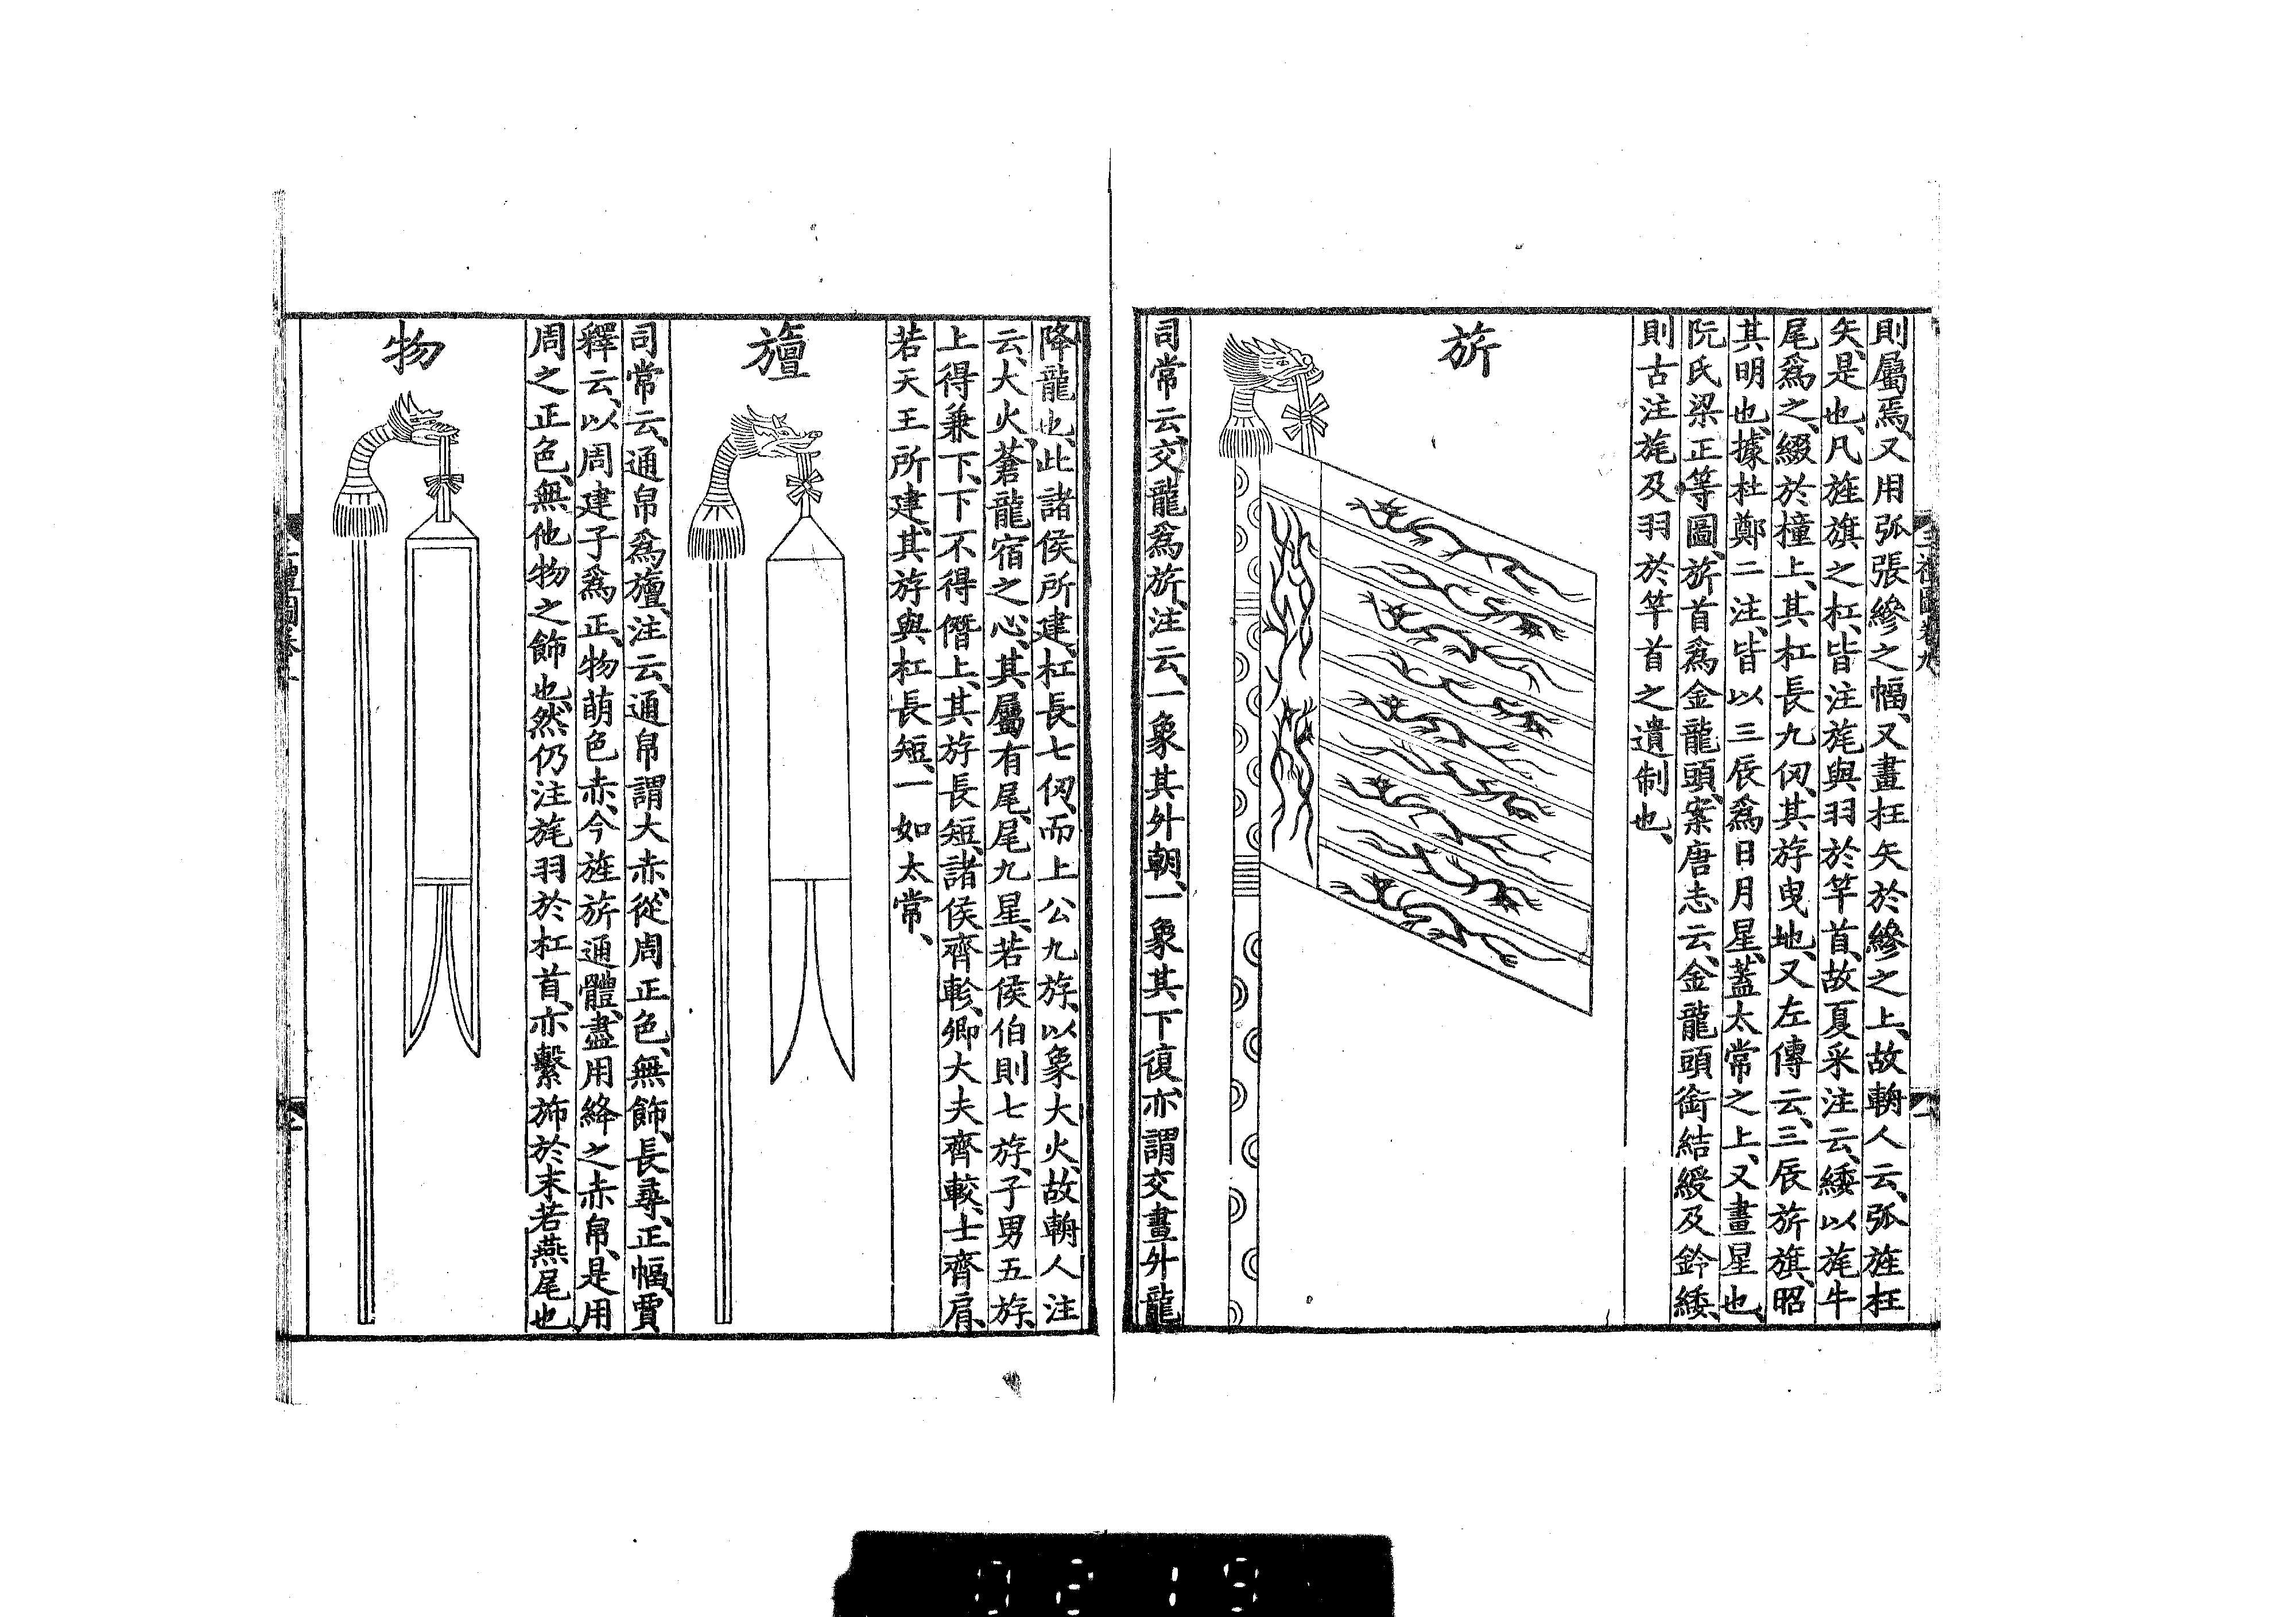 則屬焉、又用弧張縿之幅、又畫枉矢於縿之上、故輈人云、弧旌枉
矢、是也、凡旌旗之杠、皆注旄與羽於竿首、故夏采注云、緌以旄牛
尾爲之、綴於橦上、其杠長九仞、其斿曳地、又左傳云、三辰旂旗、昭
其明也、據杜鄭二注、皆以三辰爲日月星、蓋太常之上、又畫星也、
阮氏梁正等圖、旂首爲金龍頭、案唐志云、金龍頭銜結綬及鈴緌、
則古注旄及羽於竿首之遺制也、
旂
司常云、交龍爲旂、注云、一象其升朝、一象其下復、亦謂交畫升龍
降龍也、此諸侯所建、杠長七仞、而上公九斿、以象大火、故輈人注
云、大火、蒼龍宿之心、其屬有尾、尾九星、若侯伯則七斿、子男五斿、
上得兼下、下不得僭上、其斿長短、諸侯齊軫、卿大夫齊較、士齊肩、
若天王所建、其斿與杠長短、一如太常、
旜
司常云、通帛爲旜、注云、通帛謂大赤、從周正色、無飾、長尋、正幅、賈
釋云、以周建子爲正、物萌色赤、今旌旂通體、盡用絳之赤帛、是用
周之正色、無他物之飾也、然仍注旄羽於杠首、亦繫斾於末若燕尾也、
物
0219